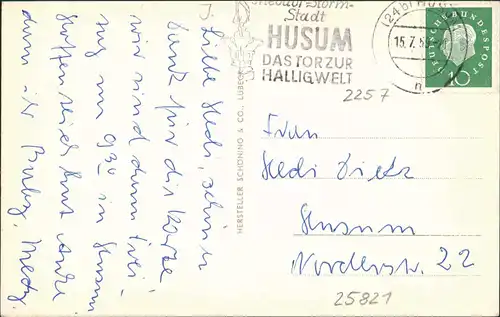 Theodor-Storm-
Stadt
HUSUM
DAS TOR ZUR
HALLIGWELT
(24b) HUSUM
15.7.
n
DEUTSCHE BUNDESPOST
10
2257
Liebe Hedi, schön
Dank für die Karte
wir sind dann frei-
tag um 9³⁰ in Husum
hoffentlich
dann ir
HERSTELLER SCHÖNING & CO., LÜBECK
Frau
Hedi Dietz
Husum
Norderstr. 22
25821